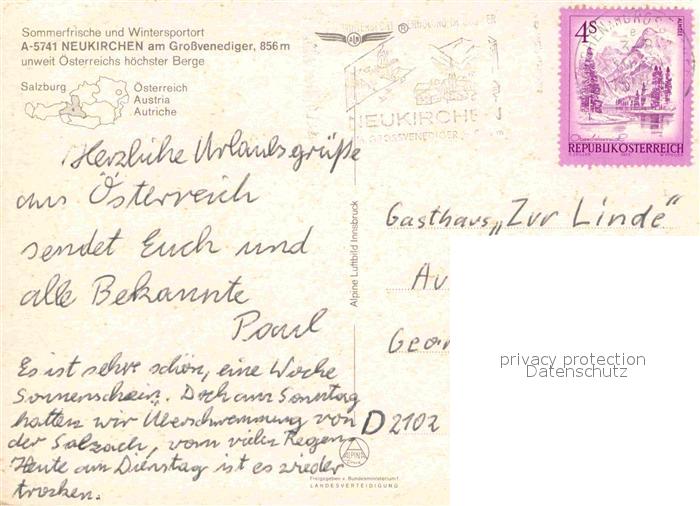 Sommerfrische und Wintersportort
A-5741 NEUKIRCHEN am Großvenediger, 856 m
unweit Österreichs höchster Berge
Salzburg
Österreich
Austria
Autriche
Herzliche Urlaubsgrüße
aus Österreich
sendet Euch und
alle Bekannte
Paul
Es ist sehr schön, eine Woche
Sonnenschein. Doch am Sonntag
hatten wir Überschwemmung von
der Salzach, vom vielen Regen.
Heute am Dienstag ist es wieder
trocken.
Alpine Luftbild Innsbruck
®
NEUKIRCHEN
GROSSVENEDIGER
4S
ALMSEE
REPUBLIK ÖSTERREICH
Gasthaus „Zur Linde"
Au
Geor
D 2102
privacy protection
Datenschutz
ALPINE
Freigegeben v. Bundesministerium f.
LANDESVERTEIDIGUNG